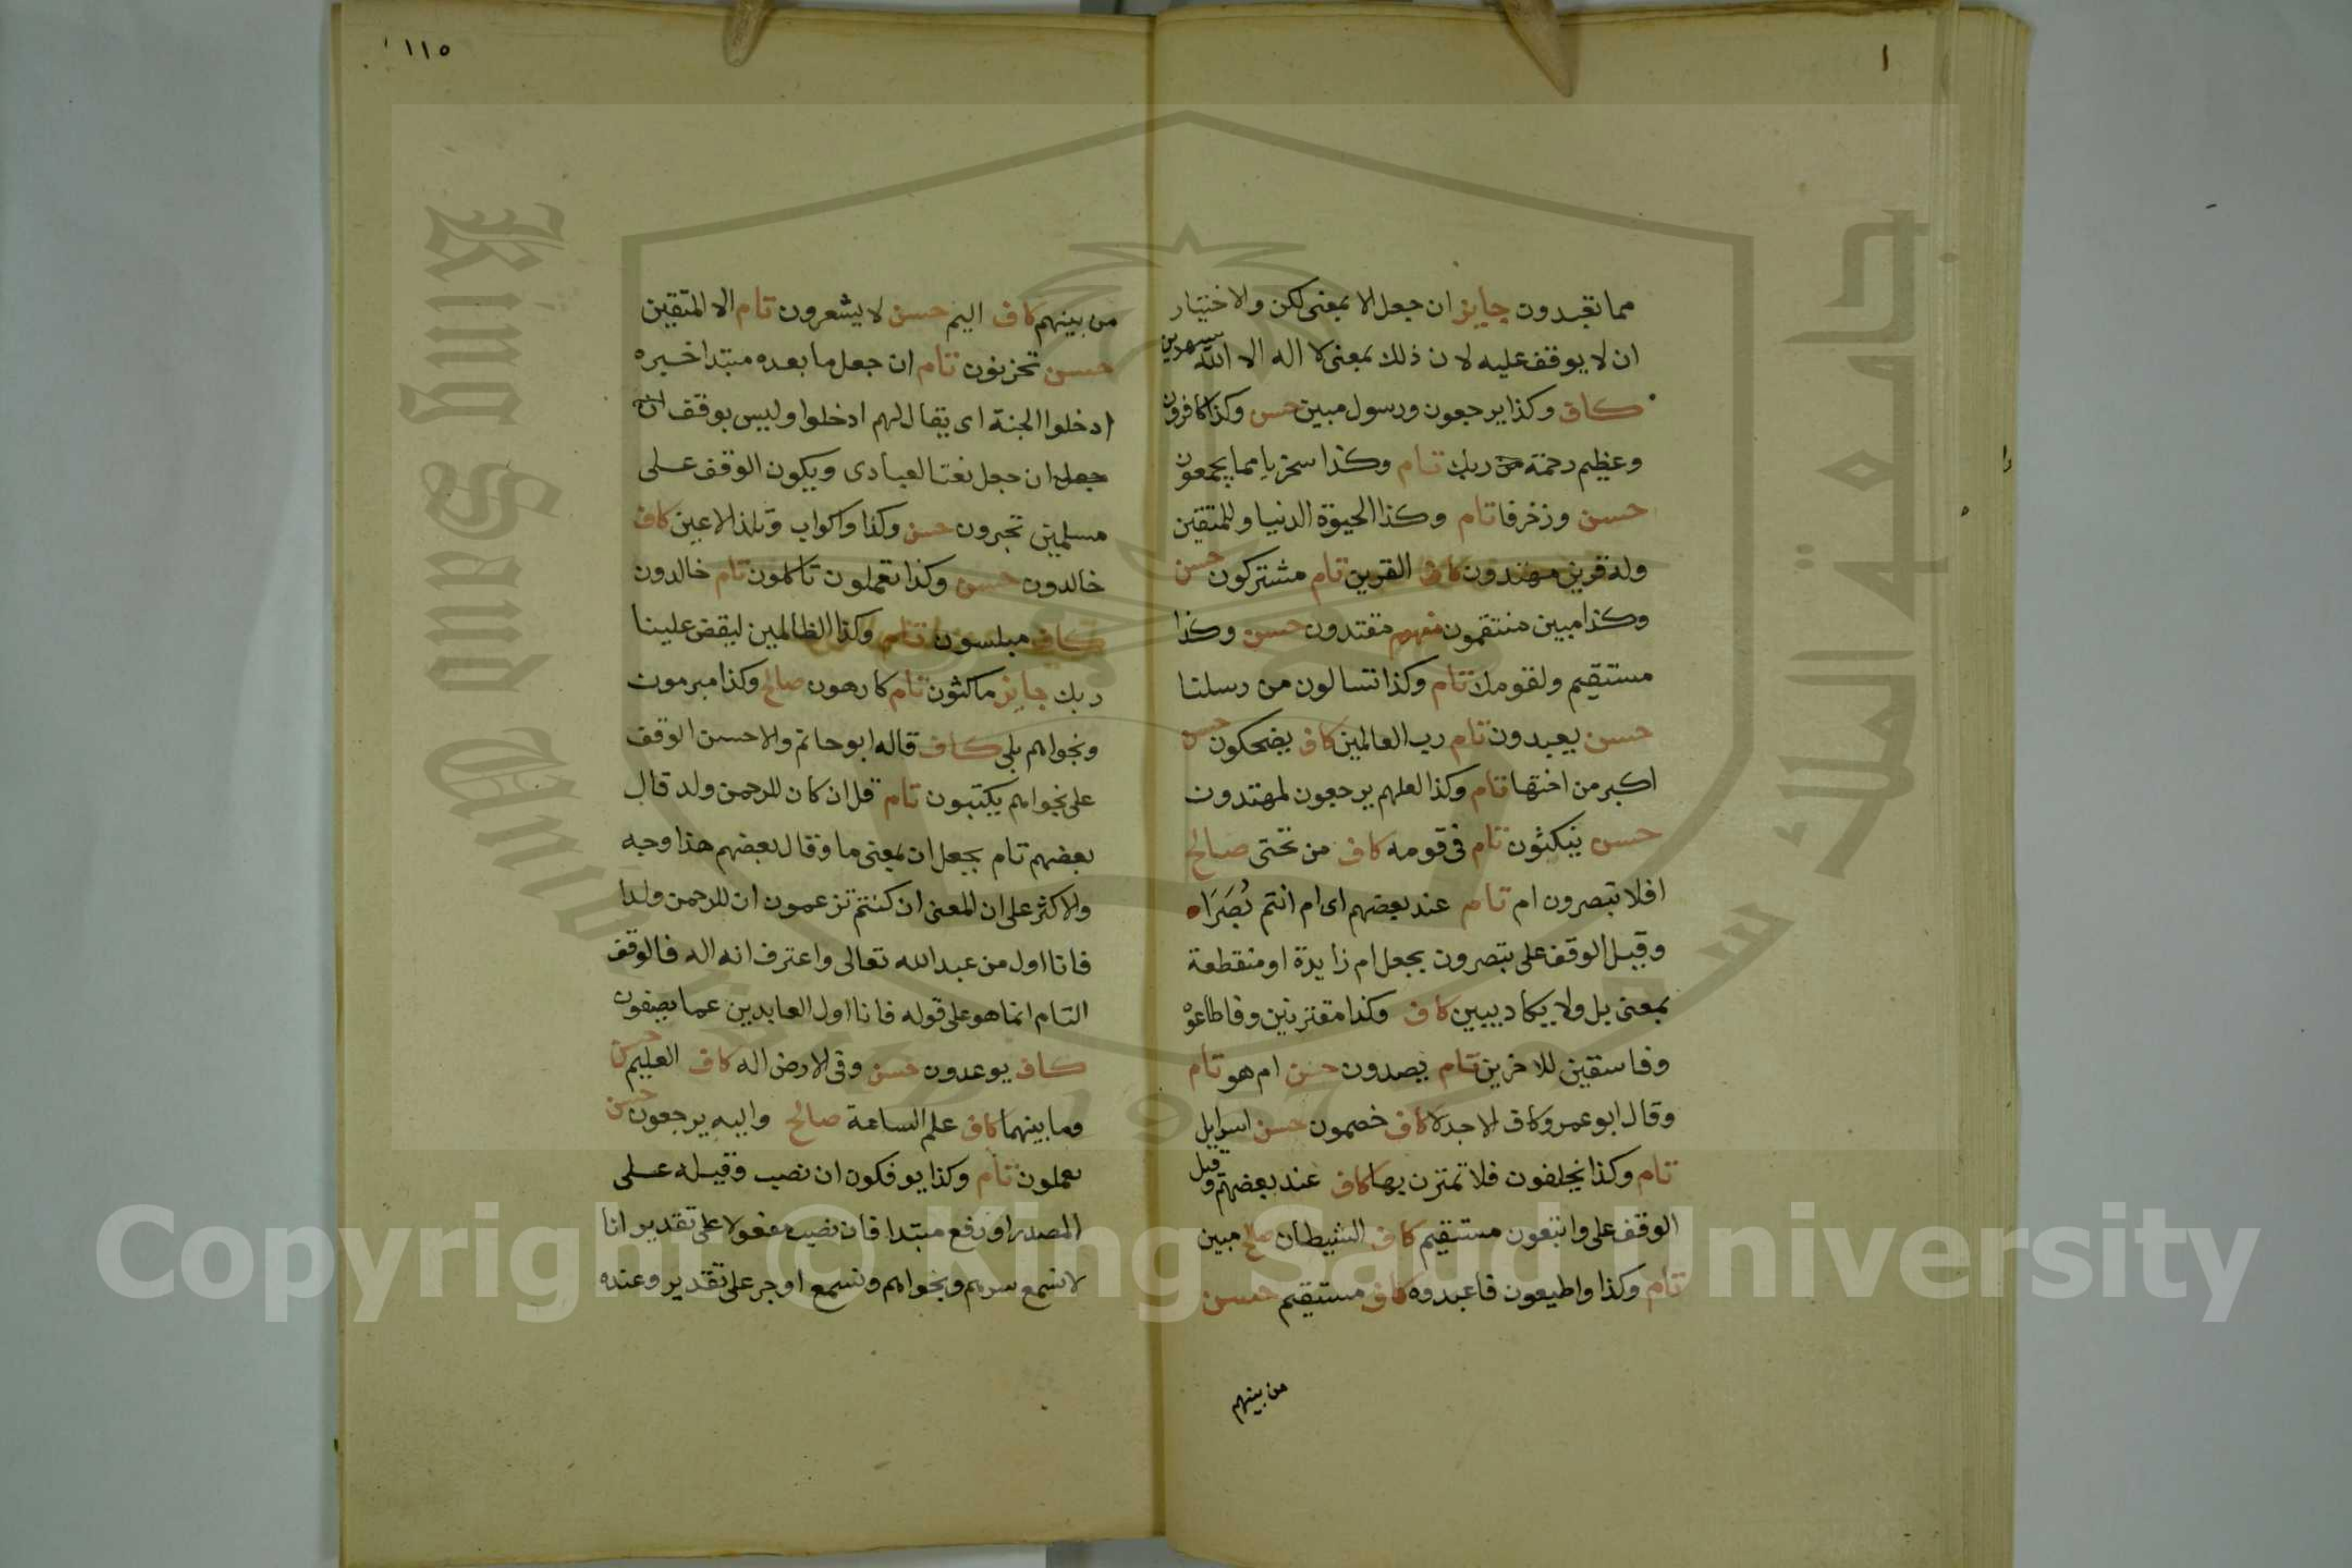 ١
مما تعبدون جايز ان جعل الا بمعنى لكن والاختيار
ان لا يوقف عليه لان ذلك بمعنى لا اله الا الله سيهدين
كاف وكذا يرجعون ورسول مبين حسن وكذا كافرون
وعظيم رحمة من ربك تام وكذا سخريا مما يجمعون
حسن وزخرفا تام وكذا الحيوة الدنيا وللمتقين
وله قرين مهتدون كاف القرين تام مشتركون حسن
وكذا مبين منتقمون مفهوم مقتدون حسن وكذا
مستقيم ولقومك تام وكذا تسالون من رسلنا
حسن يعبدون تام رب العالمين كاف يضحكون حسن
اكبر من اختها تام وكذا لعلهم يرجعون لمهتدون
حسن ينكثون تام فى قومه كاف من تحتى صالح
افلا تبصرون ام تام عند بعضهم اى ام انتم بُصَرَاء
وقيل الوقف على تبصرون بجعل ام زايدة او منقطعة
بمعنى بل ولا يكاد يبين كاف وكذا مقترنين وفاطاعوه
وفاسقين للاخرين تام يصدون حسن ام هو تام
وقال ابو عمرو كاف الا جدلا كاف خصمون حسن اسرايل
تام وكذا يخلفون فلا تمترن بها كاف عند بعضهم وقيل
الوقف على واتبعون مستقيم كاف الشيطان صالح مبين
تام وكذا واطيعون فاعبدوه كاف مستقيم حسن
من بينهم
١١٥
من بينهم كاف اليم حسن لا يشعرون تام الا المتقين
حسن تحزنون تام ان جعل ما بعده مبتدا خبره
ادخلوا الجنة اى يقال لهم ادخلوا وليس بوقف ان
جعل ان جعل نعتا لعبادى ويكون الوقف على
مسلمين تحبرون حسن وكذا واكواب وتلذ الاعين كاف
خالدون حسن وكذا تعملون تاكلون تام خالدون
كاف مبلسون تام وكذا الظالمين ليقض علينا
ربك جايز ماكثون تام كارهون صالح وكذا مبرمون
ونجواهم بلى كاف قاله ابو حاتم والاحسن الوقف
على نجواهم يكتبون تام قل ان كان للرحمن ولد قال
بعضهم تام بجعل ان بمعنى ما وقال بعضهم هذا وجه
والاكثر على ان المعنى ان كنتم تزعمون ان للرحمن ولدا
فانا اول من عبد الله تعالى واعترف انه اله فالوقف
التام انما هو على قوله فانا اول العابدين عما يصفون
كاف يوعدون حسن وفى الارض اله كاف العليم حسن
وما بينهما كاف علم الساعة صالح واليه يرجعون حسن
يعملون تام وكذا يوفكون ان نصب وقيله على
المصدر او رفع مبتدا فان نصب مفعولا على تقدير انا
لا نسمع سرهم ونجواهم ونسمع او جر على تقدير وعنده
King Saud University
جامعة الملك س
1957
Copyright © King Saud University